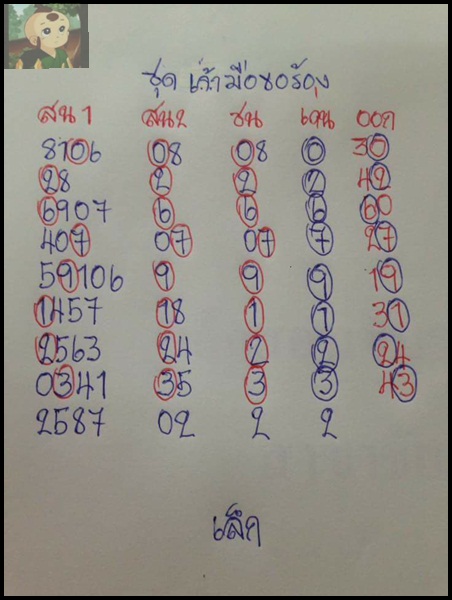 ชุด เจ้ามือขอร้อง
สน1 สน2 ชน เด่น ออก
8106 08 08 0 30
28 2 2 2 42
6907 6 6 6 60
407 07 07 7 27
59106 9 9 9 19
1457 18 1 1 31
2563 24 2 2 24
0341 35 3 3 43
2587 02 2 2